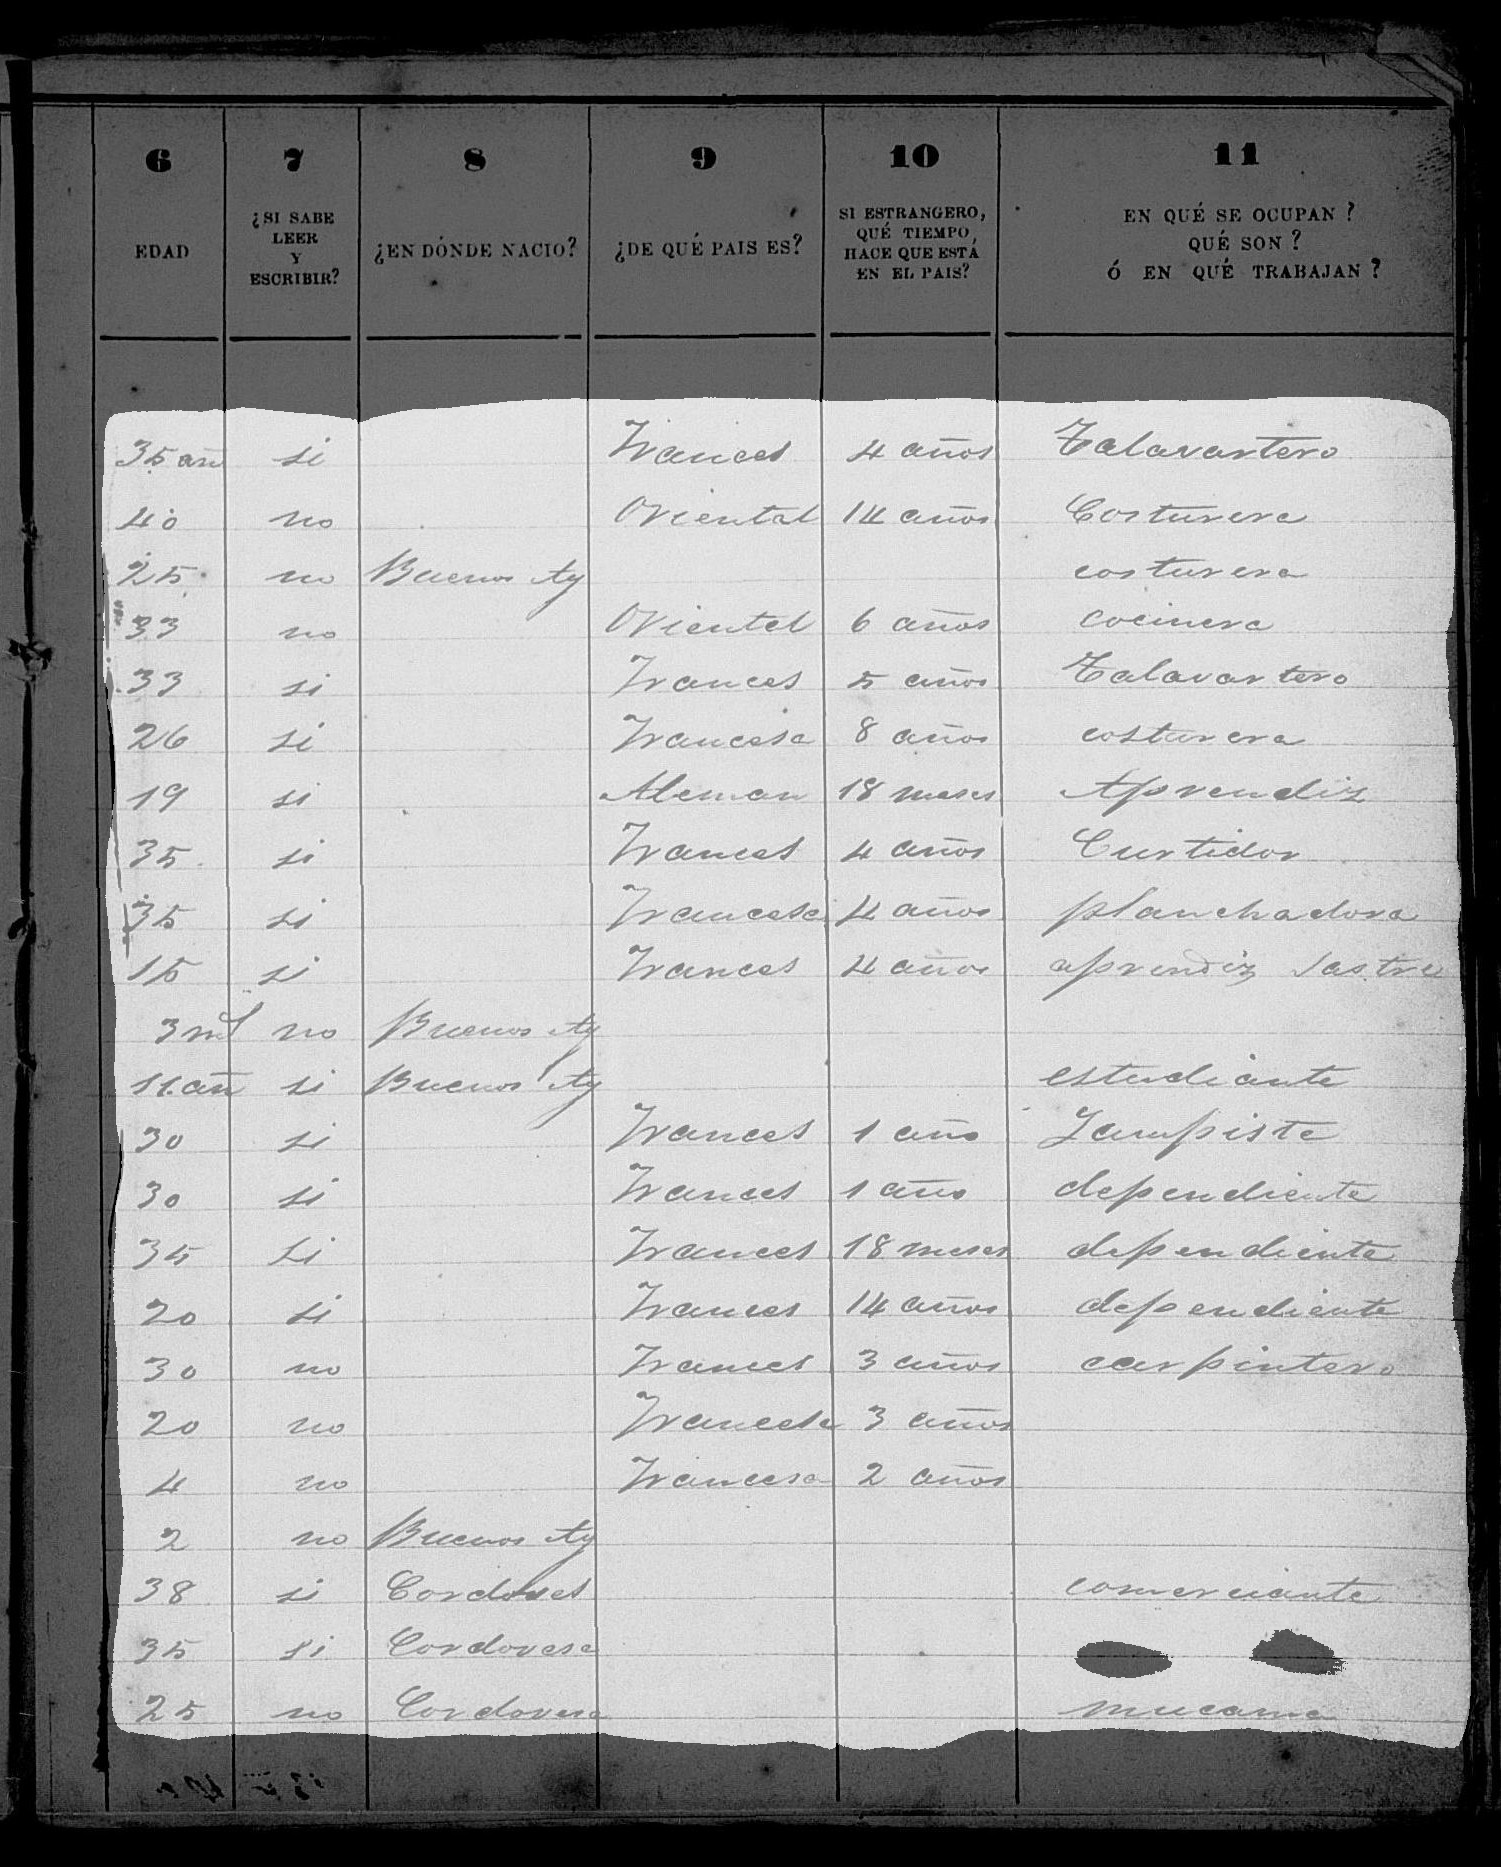 6 7 8 9 10 11
EDAD ¿SI SABE LEER Y ESCRIBIR? ¿EN DÓNDE NACIO? ¿DE QUÉ PAIS ES? SI ESTRANGERO, QUÉ TIEMPO, HACE QUE ESTÁ EN EL PAIS? EN QUÉ SE OCUPAN? QUÉ SON? Ó EN QUÉ TRABAJAN?
35 añ si Frances 4 años Talavartero
40 no Oriental 14 años Costurera
25 no Buenos Ay costurera
33 no Oriental 6 años cocinera
33 si Frances 5 años Talavartero
26 si Francesa 8 años costurera
19 si Aleman 18 meses Aprendiz
35 si Frances 4 años Curtidor
35 si Francesa 4 años planchadora
15 si Frances 4 años aprendiz sastre
3 ms no Buenos Ay
11 añ si Buenos Ay estudiante
30 si Frances 1 año Lampiste
30 si Frances 1 año dependiente
35 si Frances 18 meses dependiente
20 si Frances 14 años dependiente
30 no Frances 3 años carpintero
20 no Francesa 3 años
4 no Francesa 2 años
2 no Buenos Ay
38 si Cordoves comerciante
35 si Cordovesa
25 no Cordovesa mucama